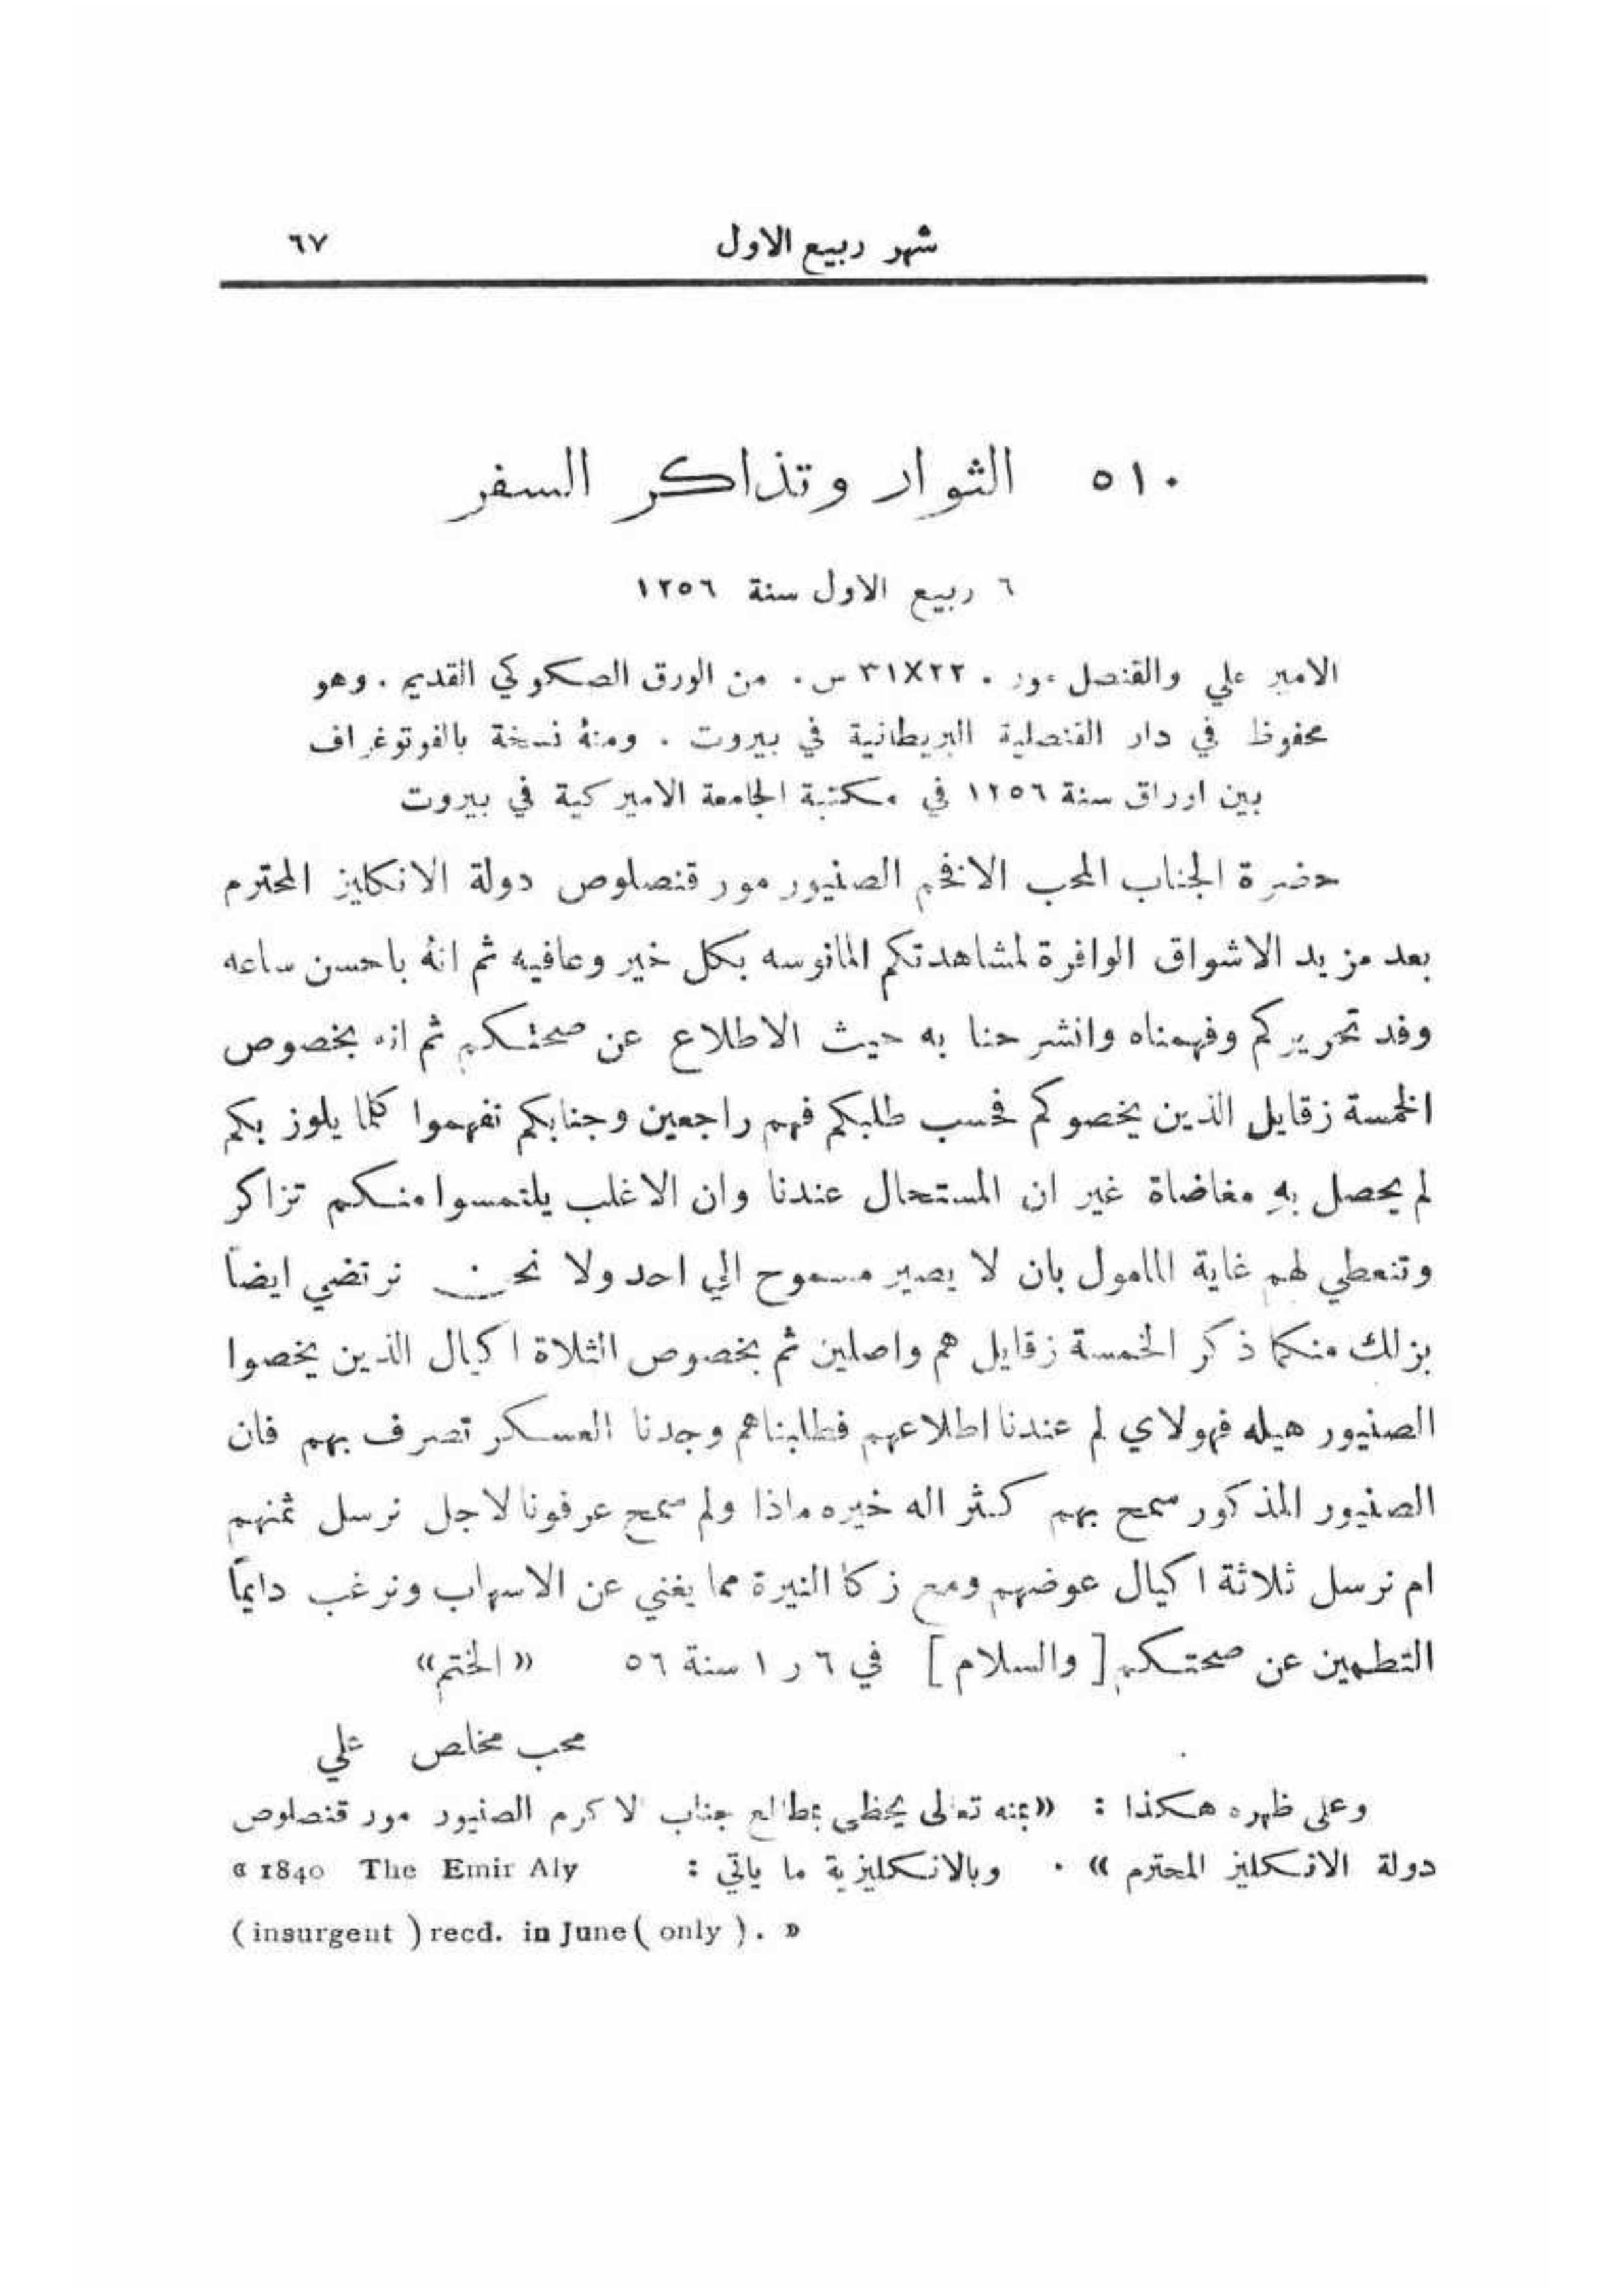 شهر ربيع الاول ٦٧
٥١٠ الثوار وتذاكر السفر
٦ ربيع الاول سنة ١٢٥٦
الامير علي والقنصل مور . ٣١X٢٢ س. من الورق الصكوكي القديم . وهو
محفوظ في دار القنصلية البريطانية في بيروت . ومنهُ نسخة بالفوتوغراف
بين اوراق سنة ١٢٥٦ في مكتبة الجامعة الاميركية في بيروت
حضرة الجناب المحب الافخم الصنيور مور قنصلوص دولة الانكليز المحترم
بعد مزيد الاشواق الوافرة لمشاهدتكم المانوسه بكل خير وعافيه ثم انهُ باحسن ساعه
وفد تحريركم وفهمناه وانشرحنا به حيث الاطلاع عن صحتكم ثم انه بخصوص
الخمسة زقايل الذين يخصوكم فحسب طلبكم فهم راجعين وجنابكم تفهموا كلما يلوز بكم
لم يحصل بهِ مغاضاة غير ان المستحال عندنا وان الاغلب يلتمسوا منكم تزاكر
وتنعطي لهم غاية المامول بان لا يصير مسموح الي احد ولا نحن نرتضي ايضاً
بزلك منكما ذكر الخمسة زقايل هم واصلين ثم بخصوص الثلاة اكيال الذين يخصوا
الصنيور هيله فهولاي لم عندنا اطلاعهم فطلبناهم وجدنا العسكر تصرف بهم فان
الصنيور المذكور سمح بهم كثر اله خيره ماذا ولم سمح عرفونا لاجل نرسل ثمنهم
ام نرسل ثلاثة اكيال عوضهم ومع زكا النيرة مما يغني عن الاسهاب ونرغب دايماً
التطمين عن صحتكم [ والسلام ] في ٦ ر ١ سنة ٥٦ « الختم »
محب مخلص علي
وعلى ظهره هكذا : « بمنه تعالى يحظى بمطالع جناب الاكرم الصنيور مور قنصلوص
دولة الانكليز المحترم » . وبالانكليزية ما ياتي : « 1840 The Emir Aly
(insurgent ) recd. in June ( only ) . »